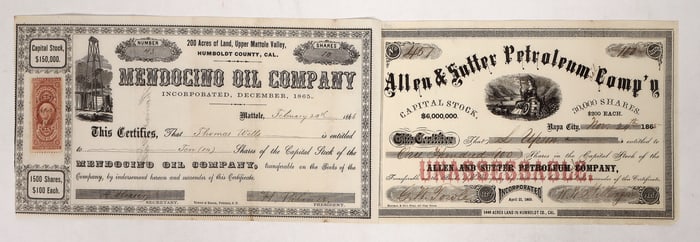 Capital Stock,
$150,000.
NUMBER
200 Acres of Land, Upper Mattole Valley,
HUMBOLDT COUNTY, CAL.
SHARES
10
MENDOCINO OIL COMPANY
INCORPORATED, DECEMBER, 1865.
Mattole, February 1866
This Certifies, That Thomas Wills is entitled
to Ten (10) Shares of the Capital Stock of the
MENDOCINO OIL COMPANY, transferable on the Books of the
Company, by indorsement hereon and surrender of this Certificate.
1500 Shares,
$100 Each.
SECRETARY.
PRESIDENT.
Allen & Sutter Petroleum Comp'y
CAPITAL STOCK,
$6,000,000.
30,000 SHARES.
$200 EACH.
Napa City, Nov 1865
This Certifies That Upson is entitled to
One Hundred (100) Shares in the Capital Stock of the
UNASSESSABLE.
ALLEN AND SUTTER PETROLEUM COMPANY,
Transferable surrender of this Certificate.
INCORPORATED
April 21, 1865.
ACRES LAND IN HUMBOLDT CO., CAL.